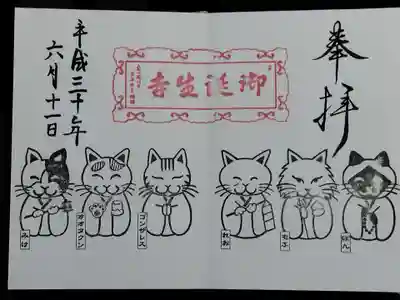 奉拝
御誕生寺
平成三十年
六月十一日
れお
コンザレス
オオタクン
みけ